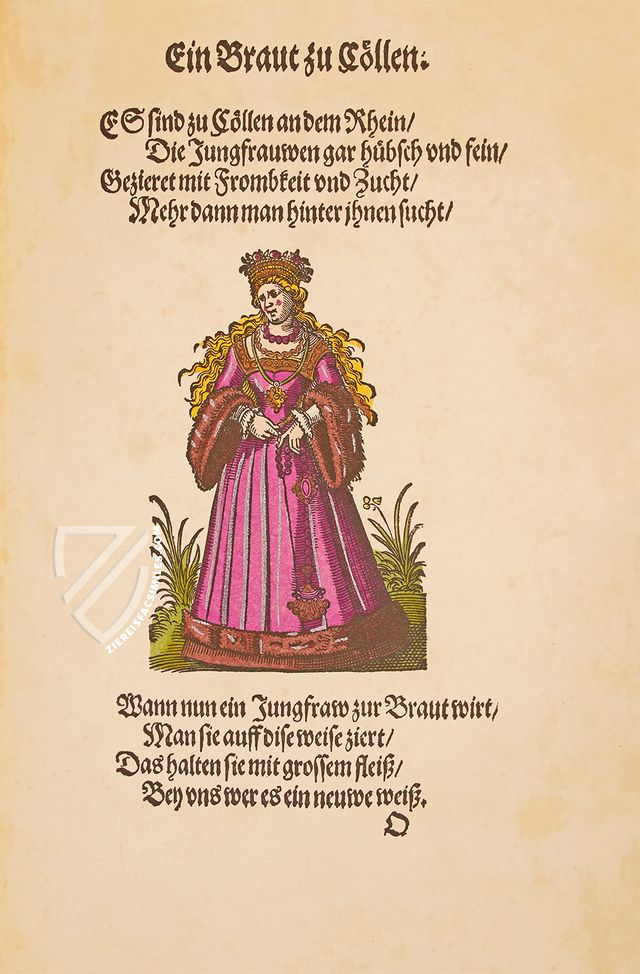 Ein Braut zu Cöllen:
ES sind zu Cöllen an dem Rhein/
Die Jungfrauwen gar hübsch vnd fein/
Gezieret mit Frombkeit vnd Zucht/
Mehr dann man hinter jhnen sucht/
ZIEREISFACSIMILES.COM
Wann nun ein Jungfraw zur Braut wirt/
Man sie auff dise weise ziert/
Das halten sie mit grossem fleiß/
Bey vns wer es ein neuwe weiß.
O